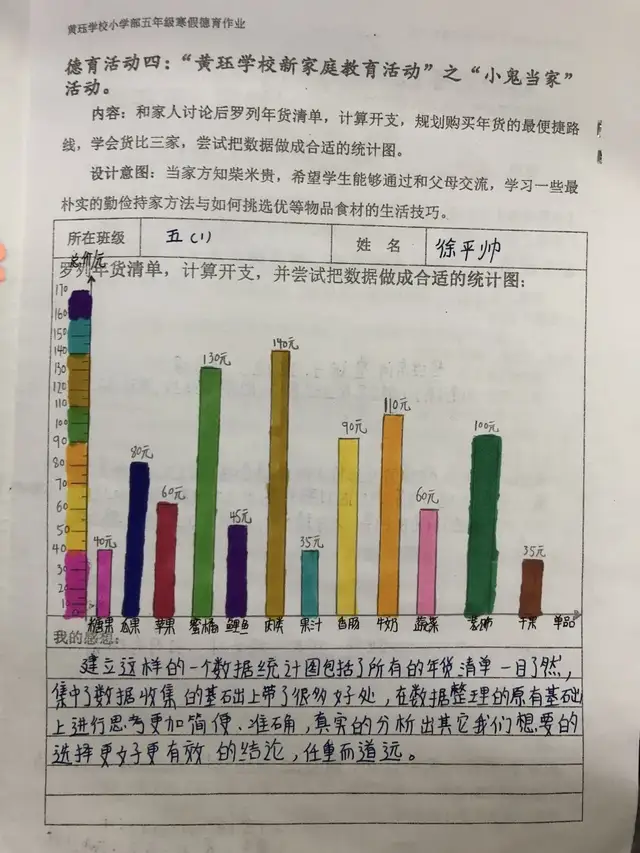 黄珏学校小学部五年级寒假德育作业
德育活动四：“黄珏学校新家庭教育活动”之“小鬼当家”
活动。
内容：和家人讨论后罗列年货清单，计算开支，规划购买年货的最便捷路
线，学会货比三家，尝试把数据做成合适的统计图。
设计意图：当家方知柴米贵，希望学生能够通过和父母交流，学习一些最
朴实的勤俭持家方法与如何挑选优等物品食材的生活技巧。
所在班级 五（1） 姓 名 徐平帅
罗列年货清单，计算开支，并尝试把数据做成合适的统计图：
总价/元
170
160
150
140
130
120
110
100
90
80
70
60
50
40
30
20
10
40元 80元 60元 130元 45元 140元 35元 90元 110元 60元 100元 35元
糖果 瓜果 苹果 蜜橘 鲤鱼 肉类 果汁 香肠 牛奶 蔬菜 干果 单品
我的感想：
建立这样的一个数据统计图包括了所有的年货清单一目了然，
集中了数据收集的基石出上带了很多好处，在数据整理的原有基石出
上进行思考更加简便、准确，真实的分析出其它我们想要的
选择更好更有效的结论，任重而道远。